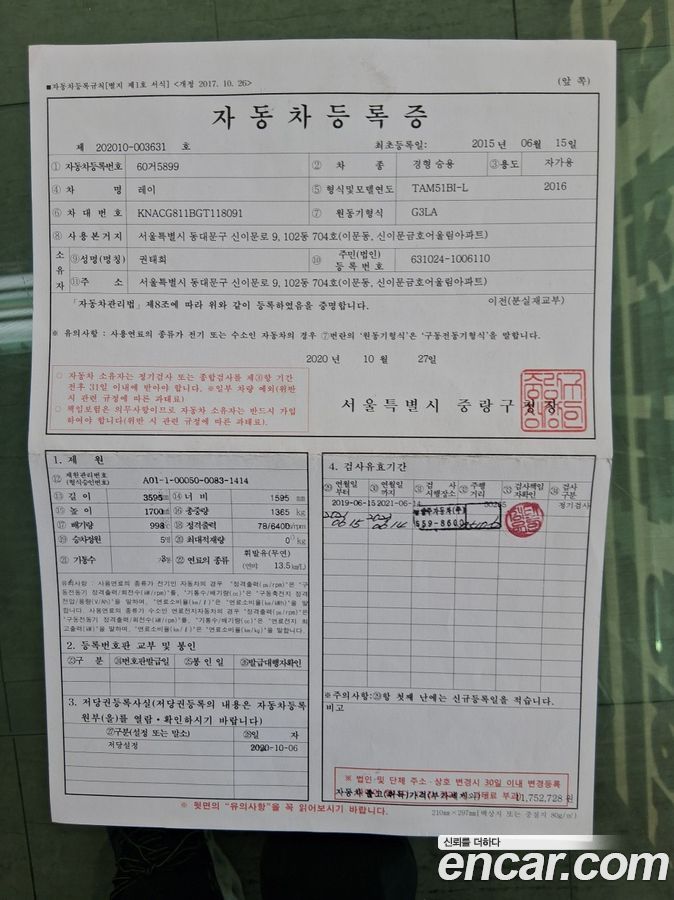 ■자동차등록규칙[별지 제1호 서식] <개정 2017. 10. 26>
(앞 쪽)
자동차등록증
제 202010-003631 호 최초등록일: 2015년 06월 15일
①자동차등록번호 60거5899 ②차 종 경형 승용 ③용도 자가용
④차 명 레이 ⑤형식및모델연도 TAM51BI-L 2016
⑥차대번호 KNACG811BGT118091 ⑦원동기형식 G3LA
⑧사용본거지 서울특별시 동대문구 신이문로 9, 102동 704호(이문동, 신이문금호어울림아파트)
소유자 ⑨성명(명칭) 권태희 ⑩주민(법인)등록번호 631024-1006110
⑪주 소 서울특별시 동대문구 신이문로 9, 102동 704호(이문동, 신이문금호어울림아파트)
「자동차관리법」 제8조에 따라 위와 같이 등록하였음을 증명합니다. 이전(분실재교부)
※ 유의사항 : 사용연료의 종류가 전기 또는 수소인 자동차의 경우 ⑦번란의 '원동기형식'은 '구동전동기형식'을 말합니다.
2020 년 10 월 27일
○ 자동차 소유자는 정기검사 또는 종합검사를 제㉚항 기간
전후 31일 이내에 받아야 합니다. ※일부 차량 예외(위반
시 관련 규정에 따른 과태료)
○ 책임보험은 의무사항이므로 자동차 소유자는 반드시 가입
하여야 합니다(위반 시 관련 규정에 따른 과태료).
서울특별시 중랑구청장
1. 제 원
⑫제원관리번호(형식승인번호) A01-1-00050-0083-1414
⑬길이 3595mm ⑭너비 1595 mm
⑮높이 1700mm ⑯총중량 1365 kg
⑰배기량 998 ⑱정격출력 78/6400rpm
⑲승차정원 5 ⑳최대적재량 0
㉑기통수 3 ㉒연료의 종류 휘발유(무연)
(연비) 13.5km/L
유의사항 : 사용연료의 종류가 전기인 자동차의 경우 "정격출력(ps/rpm)"은 "구
동전동기 정격출력/회전수(kW/rpm)"를, "기통수/배기량(cc)"은 "구동축전지 정격
전압/용량(V/Ah)"을 말하며, "연료소비율(km/ℓ)"은 "연료소비율(km/kWh)"을 말
합니다. 사용연료의 종류가 수소인 연료전지자동차의 경우 "정격출력(ps/rpm)"은
"구동전동기 정격출력/회전수(kW/rpm)"를, "기통수/배기량(cc)"은 "연료전지 최
고출력(kW)"을 말하며, "연료소비율(km/ℓ)"은 "연료소비율(km/kg)"을 말합니다.
2. 등록번호판 교부 및 봉인
㉓구 분 ㉔번호판발급일 ㉕봉인일 ㉖발급대행자확인
3. 저당권등록사실(저당권등록의 내용은 자동차등록
원부(을)를 열람·확인하시기 바랍니다)
㉗구분(설정 또는 말소) ㉘일 자
저당설정 2020-10-06
4. 검사유효기간
㉙연월일부터 ㉚연월일까지 ㉛검사시행장소 ㉜주행거리 ㉝검사책임자확인 ㉞검사구분
2019-06-15 2021-06-14 정기검사
※주의사항:㉙항 첫째 난에는 신규등록일을 적습니다.
비고
※ 법인 및 단체 주소·상호 변경시 30일 이내 변경등록
11,752,728 원
※ 뒷면의 "유의사항"을 꼭 읽어보시기 바랍니다.
210㎜×297㎜[백상지 또는 중질지 80g/㎡]
신뢰를 더하다
encar.com